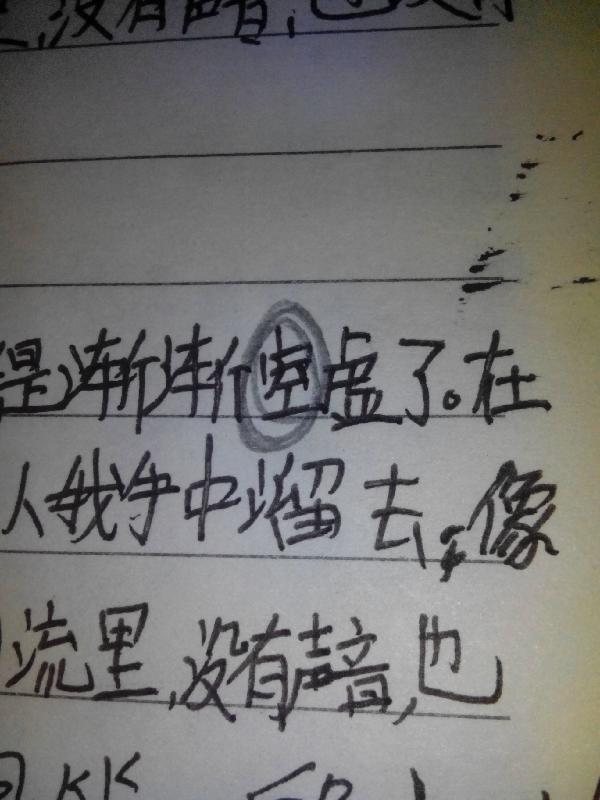 没有声音,也没有
是渐渐空虚了。在
我手中溜去,像
流里,没有声音,也